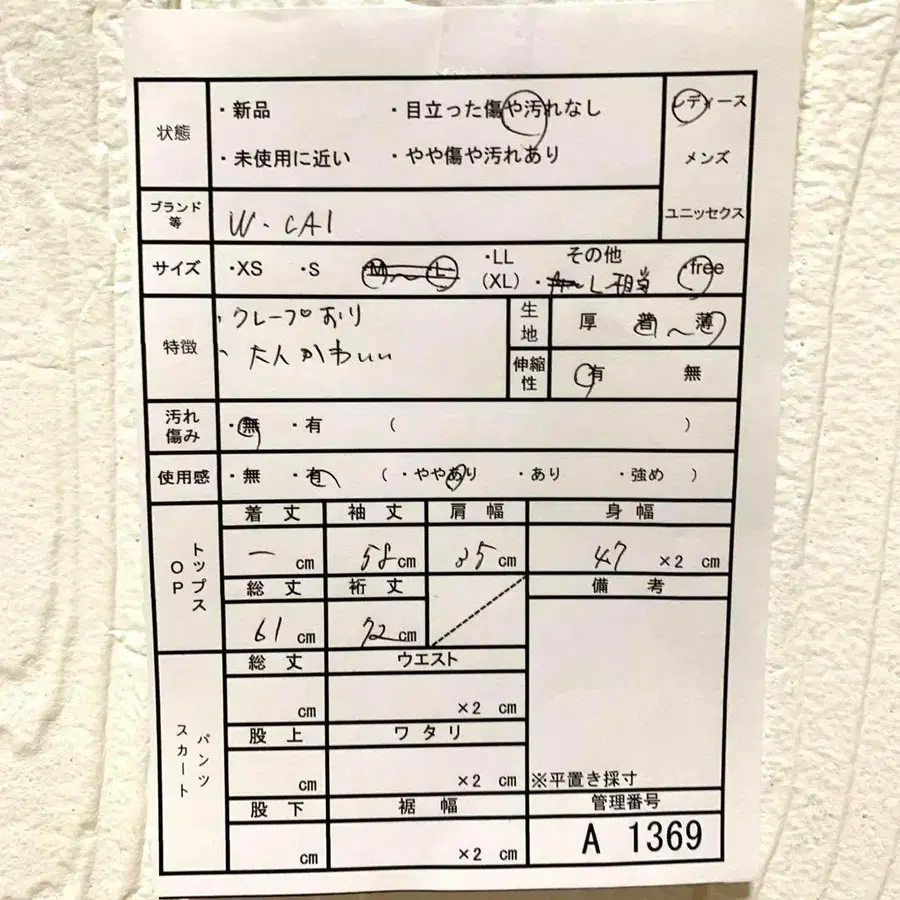 状態
・新品
・目立った傷や汚れなし
・未使用に近い
・やや傷や汚れあり
レディース
メンズ
ユニセックス
ブランド等
W・CAI
サイズ
・XS ・S M～L ・LL(XL) その他
・L相当
free
特徴
・クレープあり
・大人かわいい
生地
厚 普～薄
伸縮性
有 無
汚れ傷み
・無 ・有 ( )
使用感
・無 ・有 ( ・ややあり ・あり ・強め )
トップスOP
着丈 袖丈 肩幅 身幅
ー cm 58cm 35cm 47 ×2 cm
総丈 裄丈 備考
61 cm 72cm
パンツスカート
総丈 ウエスト
cm ×2 cm
股上 ワタリ
cm ×2 cm
※平置き採寸
股下 裾幅 管理番号
cm ×2 cm A 1369